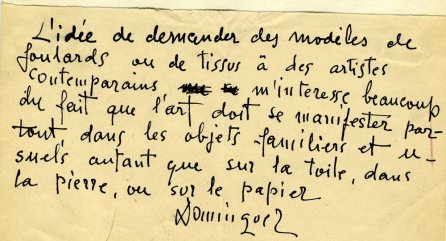 L'idée de demander des modèles de
foulards ou de tissus à des artistes
contemparains m'interesse beaucoup
du fait que l'art doit se manifester par-
tout dans les objets familiers et u-
suels autant que sur la toile, dans
la pierre, ou sur le papier
Dominguez